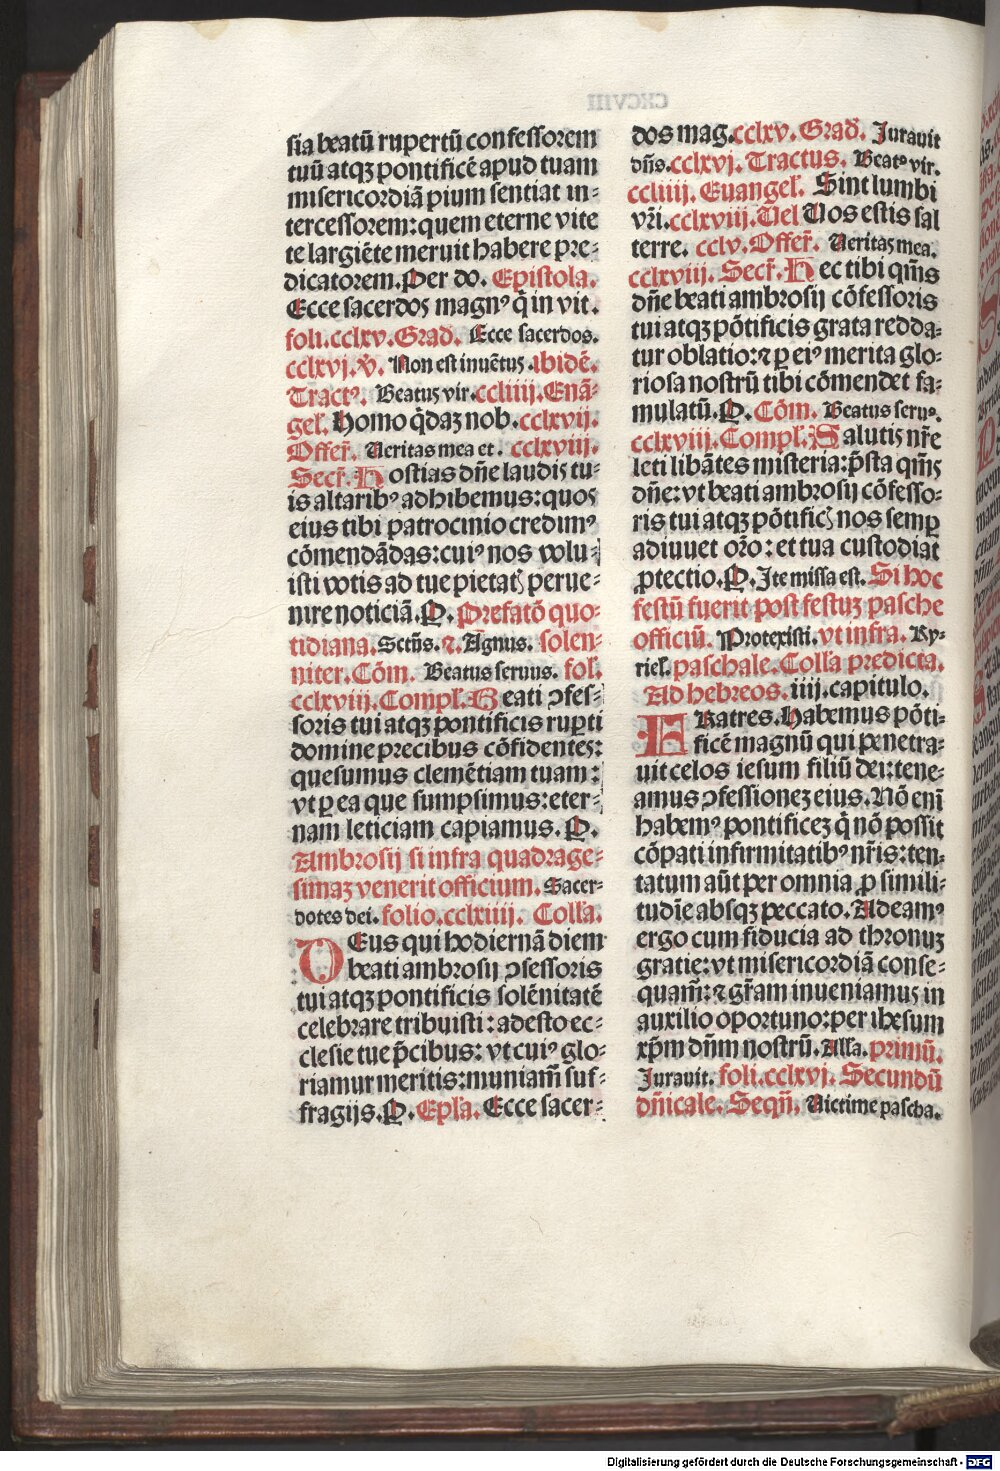 sia beatū rupertū confessorem
tuū atqꝫ pontificē apud tuam
misericordiā pium sentiat in-
tercessorem: quem eterne vite
te largiēte meruit habere pre-
dicatorem. Per do. Epistola.
Ecce sacerdos magnꝰ q̄ in vit.
foli. cclxv. Grad. Ecce sacerdos.
cclxvj. ℣. Non est inuētus. ibidē.
Tractꝰ. Beatus vir. ccliiij. Euā-
gel. Homo q̄daꝫ nob. cclxvij.
Offer̄. Ueritas mea et. cclxviij.
Secr̄. Hostias dn̄e laudis tu-
is altaribꝰ adhibemus: quos
eius tibi patrocinio credimꝰ
cōmendādas: cuiꝰ nos volu-
isti votis ad tue pietatꝭ perue-
nire noticiā. P. Prefatō quo-
tidiana. Sctūs. ⁊. Agnus. solen-
niter. Cōm. Beatus seruus. fol.
cclxviij. Compl. Beati ꝯfes-
soris tui atqꝫ pontificis ruꝑti
domine precibus cōfidentes:
quesumus clemētiam tuam:
vt ꝑ ea que sumpsimus: eter-
nam leticiam capiamus. P.
Ambrosij si infra quadrage-
simaꝫ venerit officium. Sacer-
dotes dei. folio. cclxiiij. Colla.
DEus qui hodiernā diem
beati ambrosij ꝯfessoris
tui atqꝫ pontificis solēnitatē
celebrare tribuisti: adesto ec-
clesie tue p̄cibus: vt cuiꝰ glo-
riamur meritis: muniam̄ suf-
fragijs. P. Epl̄a. Ecce sacer-
CXCVIII
dos mag. cclxv. Grad. Jurauit
dn̄s. cclxvj. Tractus. Beatꝰ vir.
ccliiij. Euangel. Sint lumbi
vr̄i. cclxviij. Uel Uos estis sal
terre. cclv. Offer̄. Ueritas mea.
cclxviij. Secr̄. Hec tibi qm̄s
dn̄e beati ambrosij cōfessoris
tui atqꝫ pōtificis grata redda-
tur oblatio: ⁊ ꝑ eiꝰ merita glo-
riosa nostrū tibi cōmendet fa-
mulatū. P. Cōm. Beatus seruꝰ.
cclxviij. Compl. Salutis nr̄e
leti libātes misteria: p̄sta qm̄s
dn̄e: vt beati ambrosij cōfesso-
ris tui atqꝫ pōtificꝭ nos semꝑ
adiuuet orō: et tua custodiat
ꝓtectio. P. Ite missa est. Si hoc
festū fuerit post festuꝫ pasche
officiū. Protexisti. vt infra. Ky-
riel. paschale. Colla predicta.
Ad hebreos. iiij. capitulo.
FRatres. Habemus pōti-
ficē magnū qui penetra-
uit celos iesum filiū dei: tene-
amus ꝯfessioneꝫ eius. Nō eni̅
habemꝰ pontificeꝫ q̄ nō possit
cōpati infirmitatibꝰ nr̄is: ten-
tatum aūt per omnia ꝓ simili-
tudīe absqꝫ peccato. Adeamꝰ
ergo cum fiducia ad thronuꝫ
gratie: vt misericordiā conse-
quam̄: ⁊ gr̄am inueniamus in
auxilio oportuno: per ihesum
xp̄m dn̄m nostrū. Alla. primū.
Jurauit. foli. cclxvj. Secundū
dn̄icale. Seqn̄. Uictime pascha.
Digitalisierung gefördert durch die Deutsche Forschungsgemeinschaft - DFG